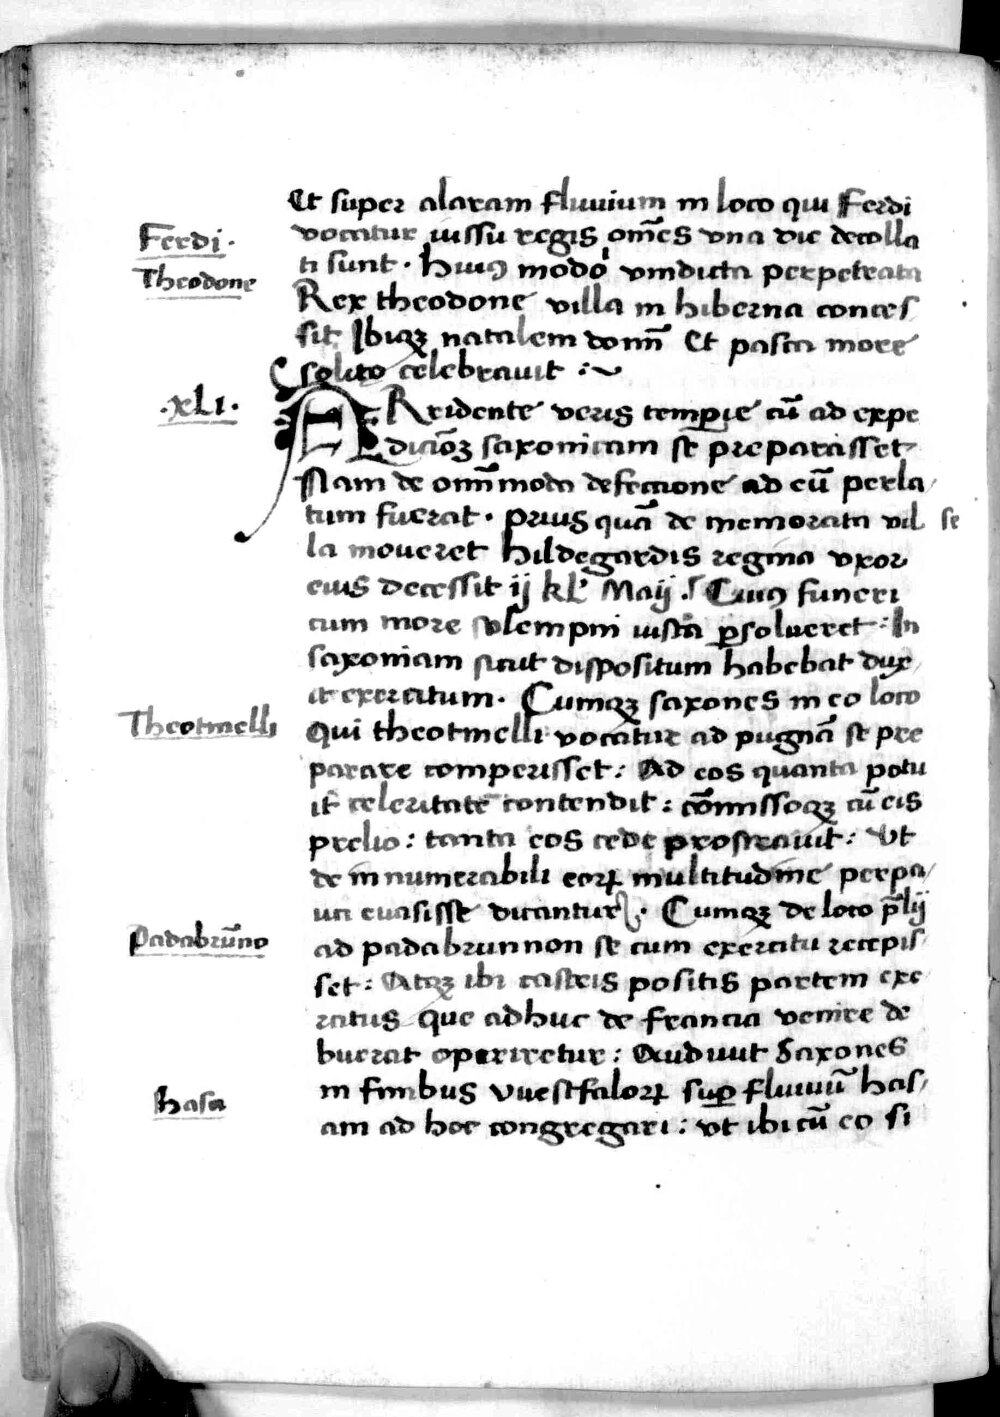 Et super alaram fluuium in loco qui Ferdi
Ferdi·
vocatur iussu regis om̅es vna die decolla
ti sunt · huiꝰ modo᷒ vindicta perpetrata
Theodone
Rex theodone villa in hiberna conces
sit Ibiqꝫ natalem domi̅ Et pasca more
solito celebrauit :~
·xLI·
ARridente veris temp̲erie cu̅ ad expe
dicio̅ꝫ saxonicam se̅ preparasset
Nam de om̅imoda defectione ad eu̅ perla
tum fuerat · prius qua̅ de memorata vil se
la moueret hildegardis regina vxor
eius decessit ij kl' Maij · Cuiꝰ funeri
cum more solempni iusta ꝑsolueret : In
saxoniam sicut dispositum habebat dux
it exercitum · Cumqꝫ saxones in eo loco
Theotmelli
Qui theotmelli vocatur ad pugna̅ se pre
parare comperisset : Ad eos quanta potu
it celeritate contendit : co̅missoqꝫ cu̅ eis
prelio : tanta eos cede prostrauit : Vt
de innumerabili eorꝝ multitudine perpa
uci euasisse dicantur · Cumqꝫ de loco p̅lij
Padabru̅no
ad padabrunnon se cum exercitu recepis
set : Atqꝫ ibi castris positis partem exe
rcitus que adhuc de francia venire de
buerat operiretur : Audiuit Saxones
in finibus vuestfalorꝝ suꝑ fluuiu̅ has
hasa
am ad hoc congregari : vt ibi cu̅ eo si